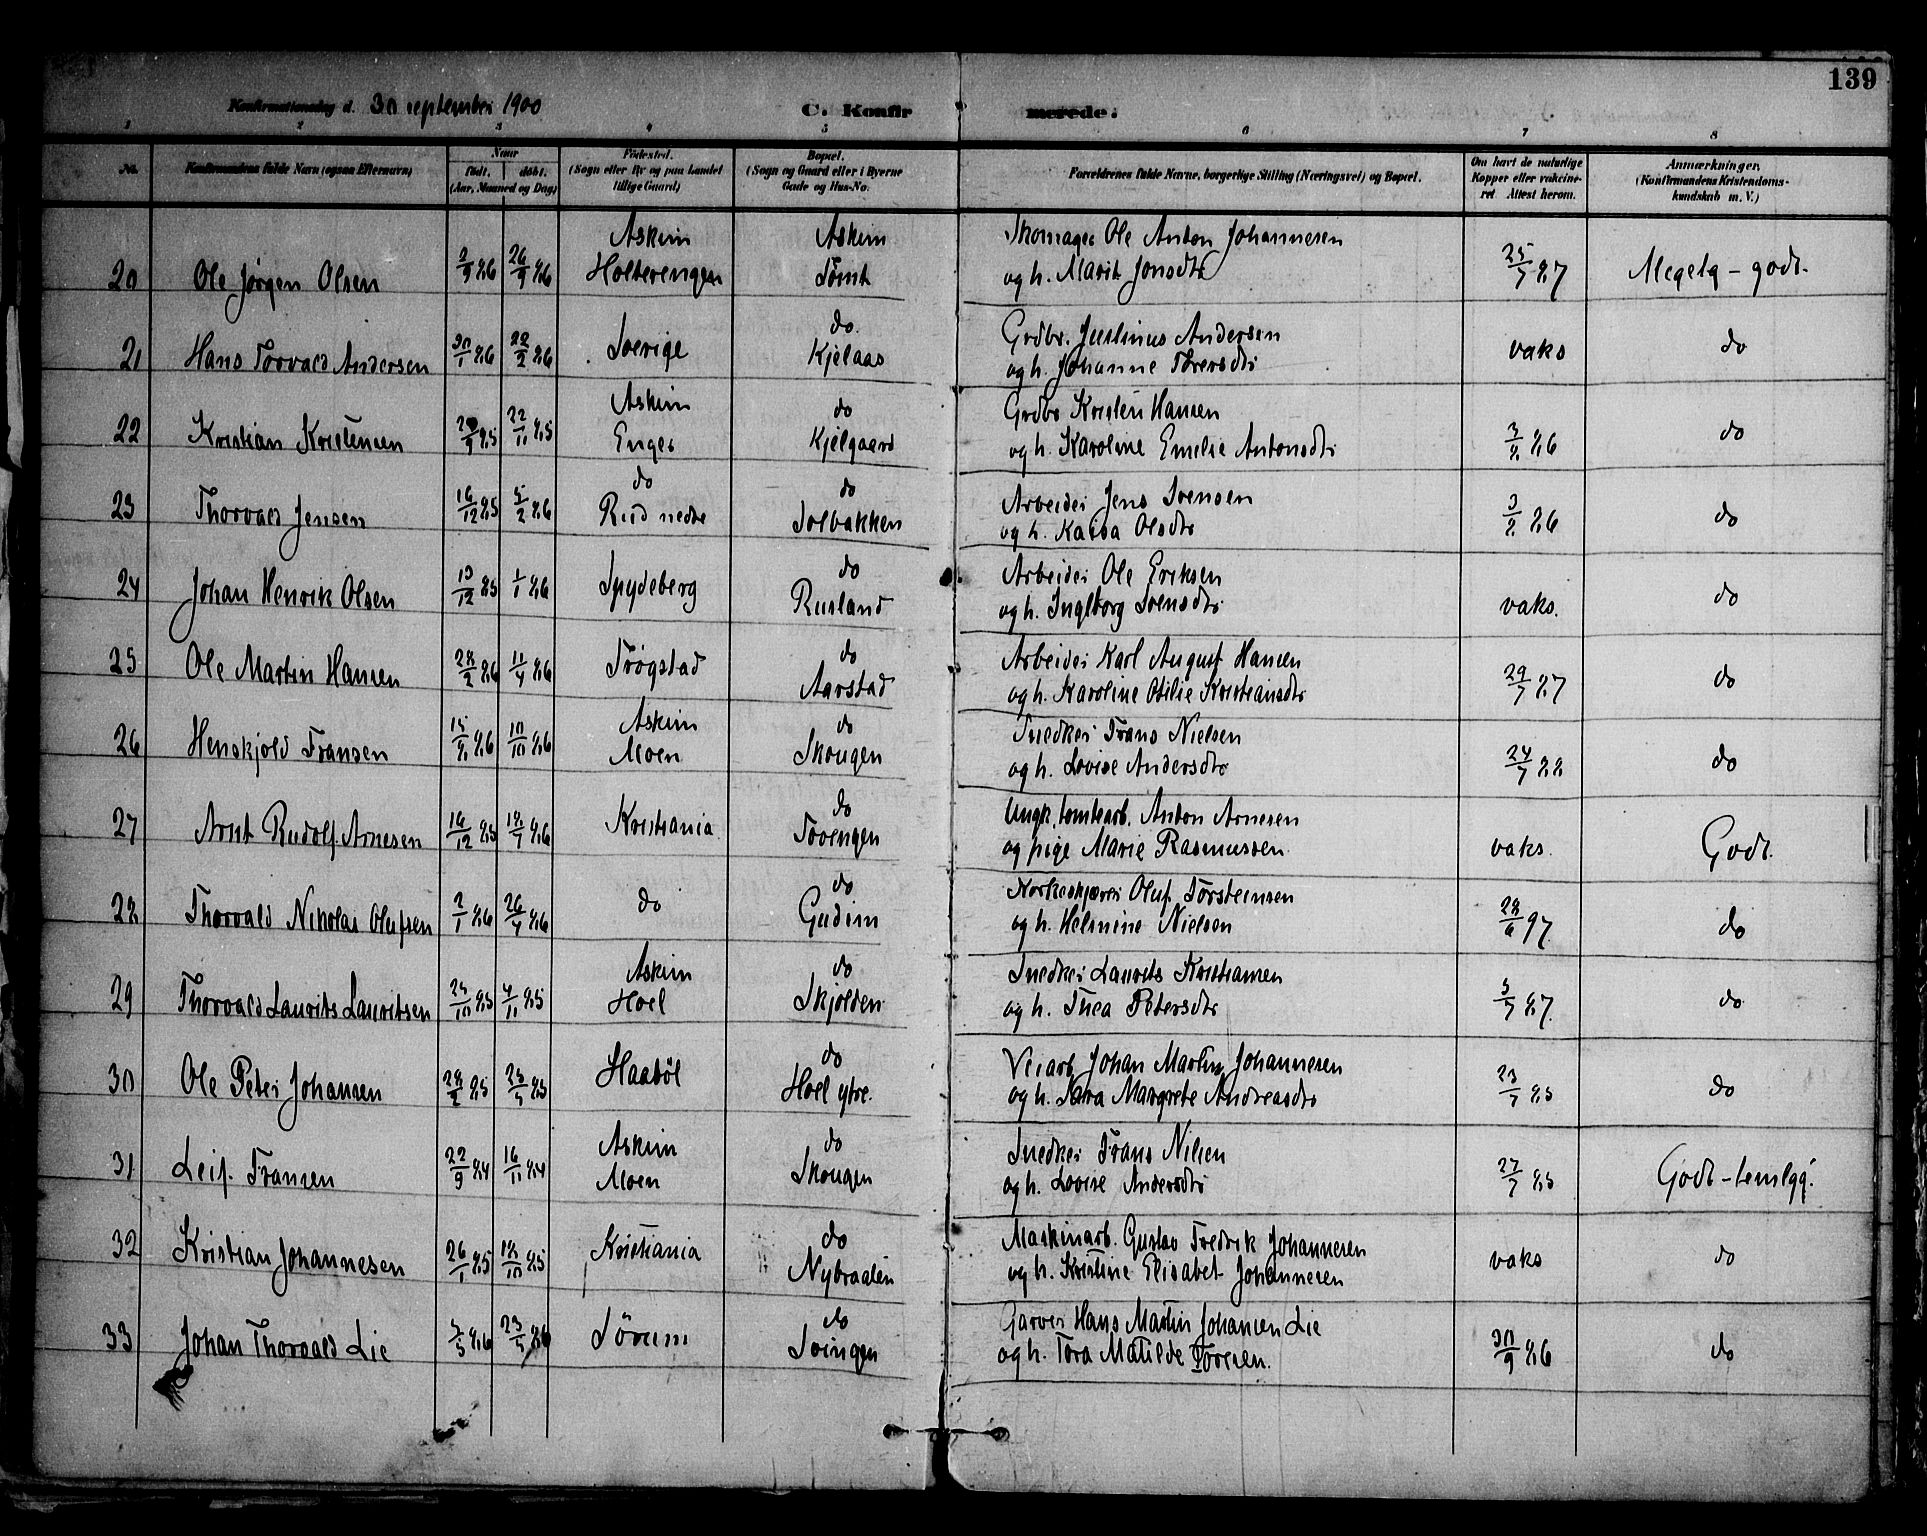 139
Konfirmationsdag d. 30 september 1900 C. Konfirmerede.
1 2 3 4 5 6 7 8
No. Konfirmandens fulde Navn (ogsaa Efternavn) Naar født. døbt. (Aar, Maaned og Dag) Fødested. (Sogn eller By og paa Landet tillige Gaard) Bopæl. (Sogn og Gaard eller i Byerne Gade og Hus-No. Forældrenes fulde Navne, borgerlige Stilling (Næringsvei) og Bopæl. Om havt de naturlige Kopper eller vakcineret Attest herom. Anmærkninger. (Konfirmandens Kristendomskundskab m. V.)
Askim Askim Skomager Ole Anton Johannesen
20 Ole Jørgen Olsen 2/9 86 26/9 86 Holterengen Tømt og h. Marit Jonsdtr 25/7 87 Megetg - godt.
do Grdbr. Justinus Andersen
21 Hans Torvald Andersen 30/1 86 22/2 86 Sverige Kjelaas og h. Johanne Torersdtr vaks do
Askim do Grdbr Kristen Hansen
22 Kristian Kristensen 85 22/11 85 Enger Kjelgaard og h. Karoline Emelie Antonsdtr 3/8 86 do
do do Arbeider Jens Svensen
23 Thorvald Jensen 16/12 85 5/2 86 Rud nedre Solbakken og h. Kaisa Olsdtr 3/8 86 do
do Arbeider Ole Eriksen
24 Johan Henrik Olsen 13/12 85 1/1 86 Spydeberg Rusland og h. Ingeborg Svensdtr vaks. do
do Arbeider Karl August Hansen
25 Ole Martin Hansen 28/2 86 11/4 86 Trøgstad Aarstad og h. Karoline Otilie Kristiansdtr 29/7 87 do
Askim do Snedker Frans Nielsen
26 Henskjold Fransen 15/8 86 10/10 86 Moen Skougen og h. Lovise Andersdtr 24/7 88 do
do Ungk. tomtearb. Anton Arnesen
27 Arnt Rudolf Arnesen 16/12 85 18/7 86 Kristiania Tovengen og pige Marie Rasmussen vaks. Godt.
do Korkeskjærer Oluf Torsteinsen
28 Thorvald Nikolai Olufsen 2/1 86 26/4 86 do Gudim og h. Helmine Nielsen 28/6 97 do
Askim do Snedker Laurits Kristiansen
29 Thorvald Laurits Lauritsen 85 4/11 85 Hoel Skjolden og h. Thea Petersdtr 5/7 87. do
do Veiarb. Johan Martin Johannesen
30 Ole Peter Johansen 28/2 85 25/5 85 Haabøl Hoel ytre. og h. Sara Margrete Andreasdtr 23/7 85 do
Askim do Snedker Frans Nilsen
31 Leif Fransen 22/9 84 16/11 84 Moen Skougen og h. Lovise Andersdtr 27/7 85 Godt - temlgg.
do Maskinarb. Gustav Fredrik Johannesen
32 Kristian Johannesen 26/1 85 18/10 85 Kristiania Nybraaten og h. Kristine Elisabet Johannesen vaks do
do Garver Hans Martin Johansen Lie
33 Johan Thorvald Lie 5/5 86 23/5 86 Sørum Svingen og h. Tora Matilde Toresen. 30/9 86 do